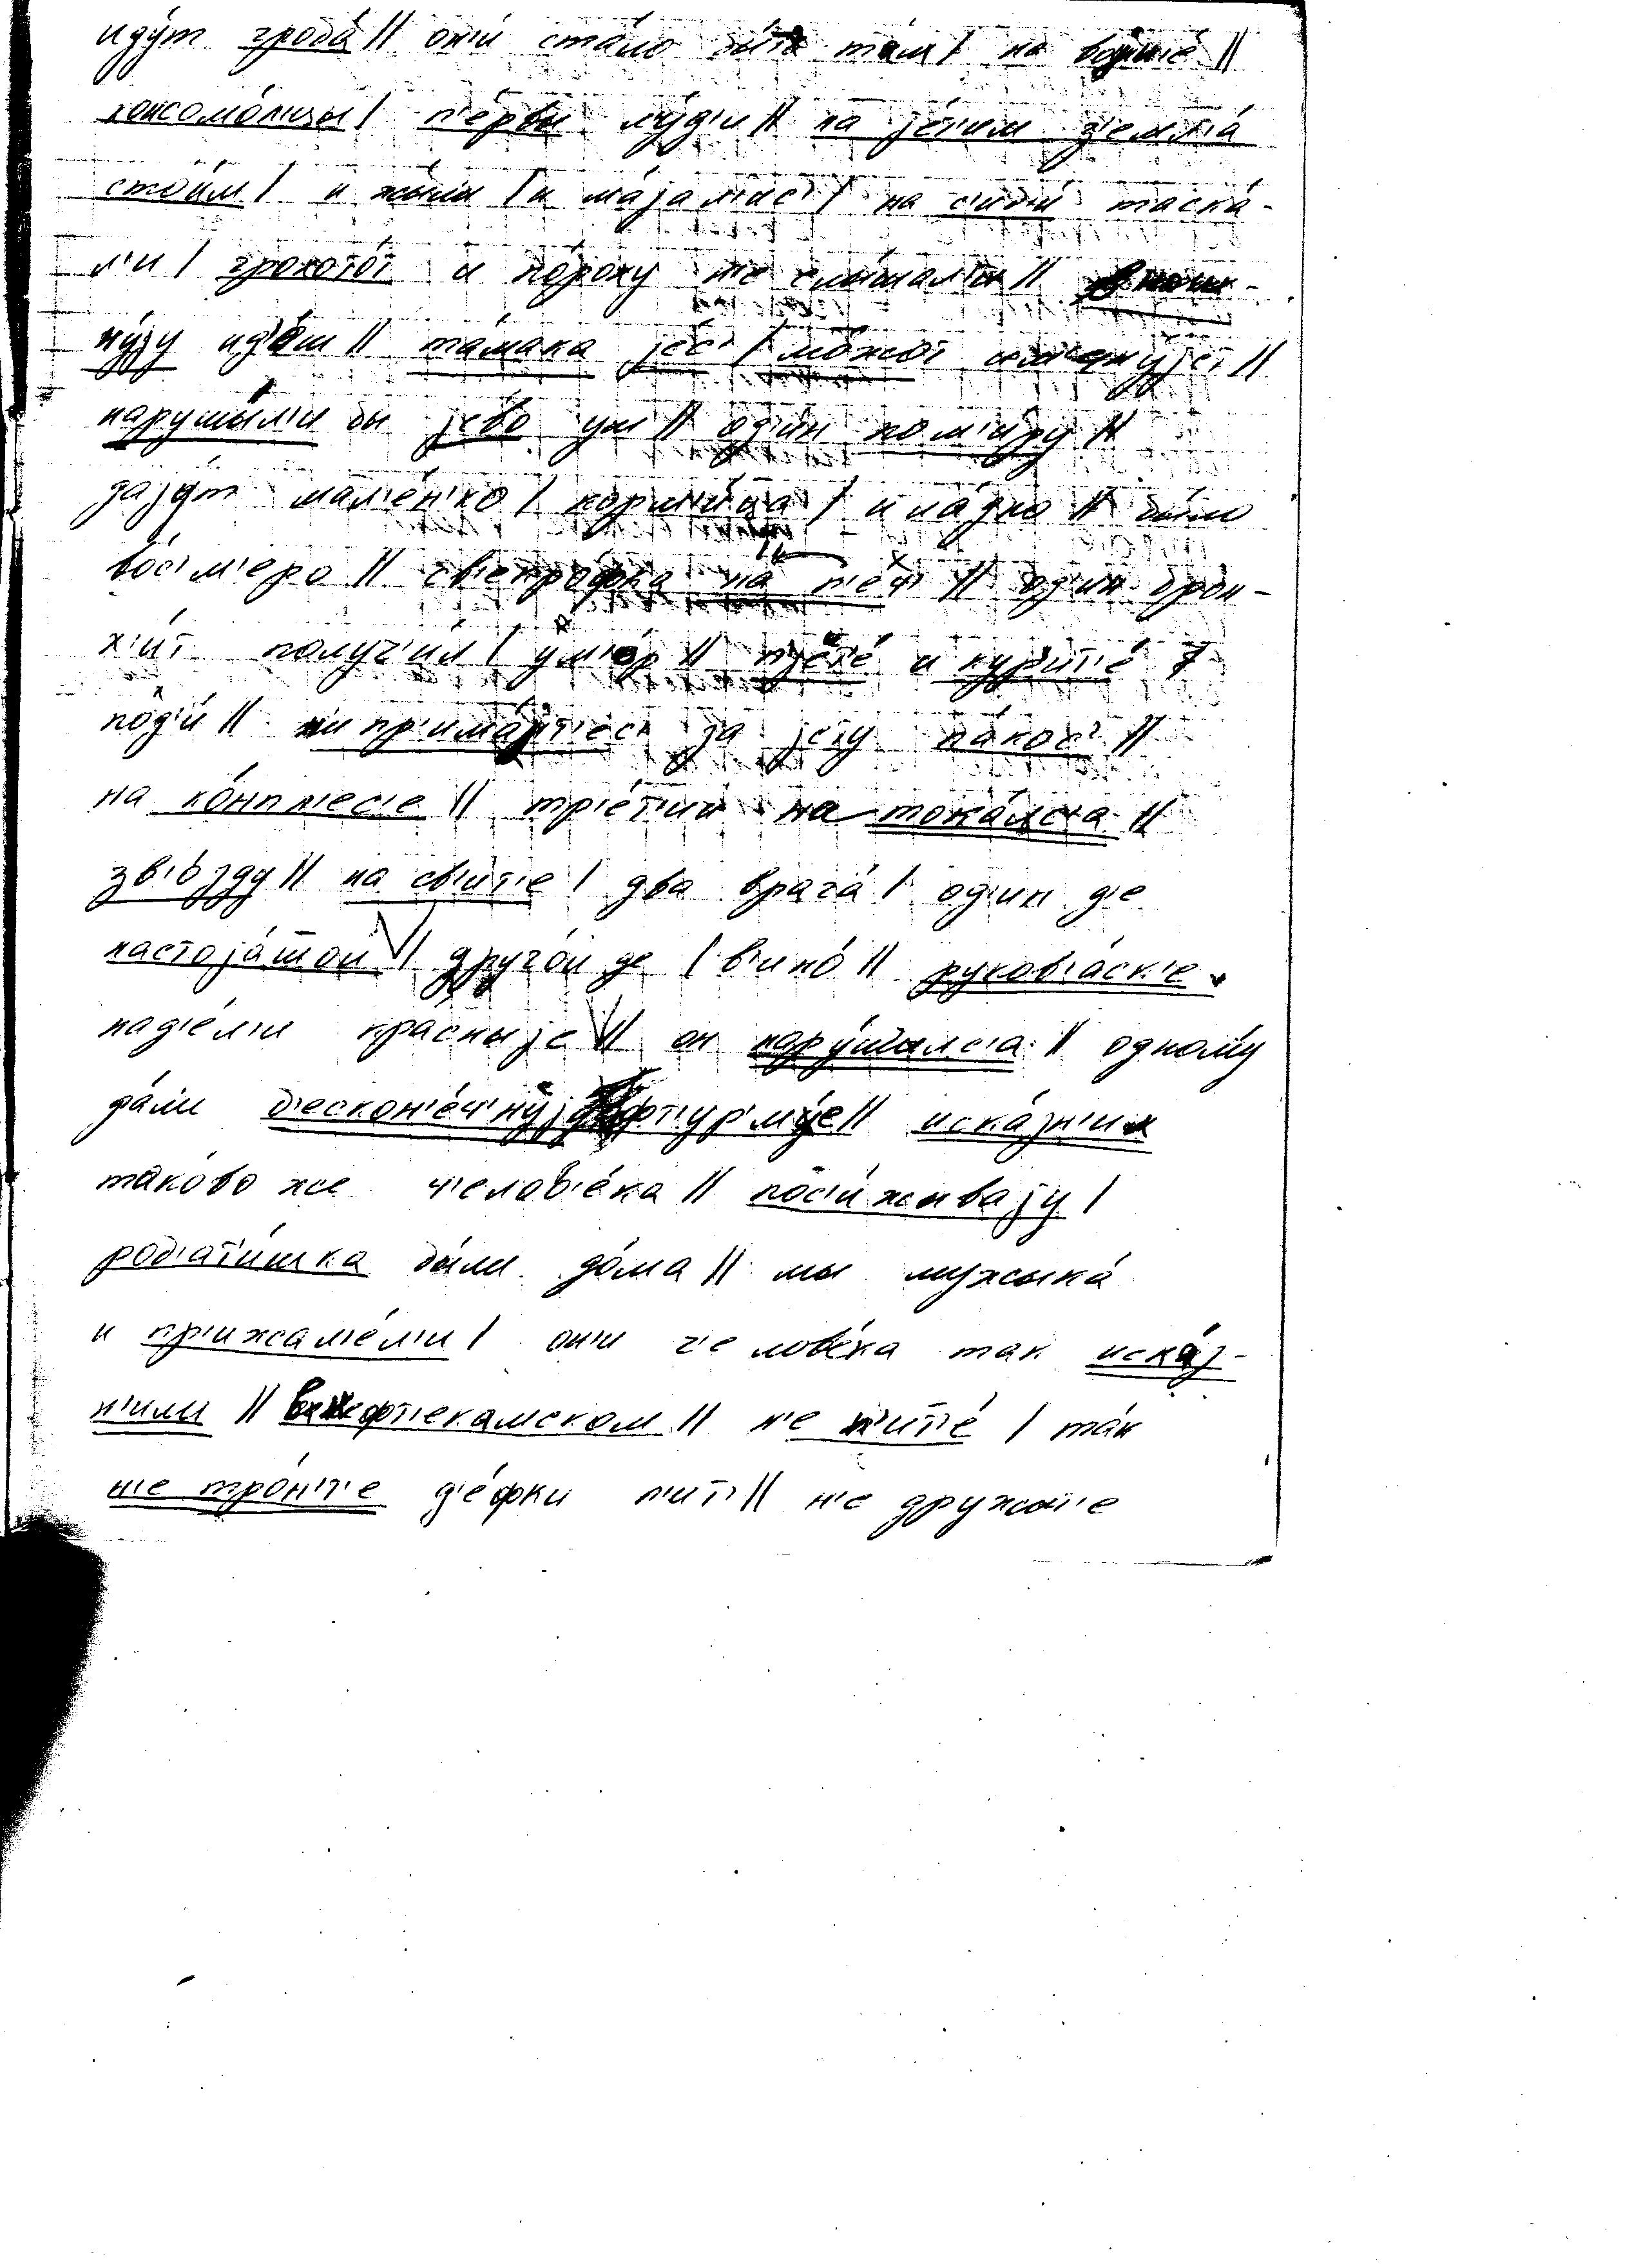 иду́т гроба́ || он'и́ ста́ло бы́т' та́м | на војн'е́ ||
комсомо́л'цы | п'е́рвы л'у́д'и || на је́т'им з'емл'а́
стои́м | и жы́л'и | и ма́јал'ис' | на с'иб'и́ таска́-
л'и | грохото́т и по́роху н'е слы́шал'и ||
ну́зу ид'о́ш || та́мака јес' | мо́жот
наруши́л'и бы јево́ уш || од'ин пом'и́ру ||
дају́т мал'е́н'ко | корм'и́ца | и ла́дно || бы́ло
во́с'м'еро || св'екро́фка на п'еч'и || од'ин брон-
х'и́т получ'и́л | у́м'ор || п'је́т'е и кур'ит'е́
под'и́ || н'и пр'има́јт'ес' за јету па́кос' ||
на ко́нпл'есе || тр'е́т'ии на-тожа́лс'а ||
зв'озду́ || на св'и́т'е | два врага́ | од'ин д'е
настоја́шои || друго́и де | в'ино́ || руков'а́ск'е
над'е́л'и кра́сныје || он нару́шылс'а || одному́
да́ли б'есконе́ч'нују ф т'ур'му́е || иска́зн'ил'и
тако́во же ч'елов'е́ка || пос'и́жываjу |
роб'ат'и́шка бы́ли до́ма || мы мужыка́
и пр'ижал'е́л'и | он'и ч'елов'е́ка так иска́з-
н'или || в н'ефт'екамском || н'е п'ит'е́ | та́к
н'е тро́н'т'е д'е́фки п'ит' || н'е дружы́т'е